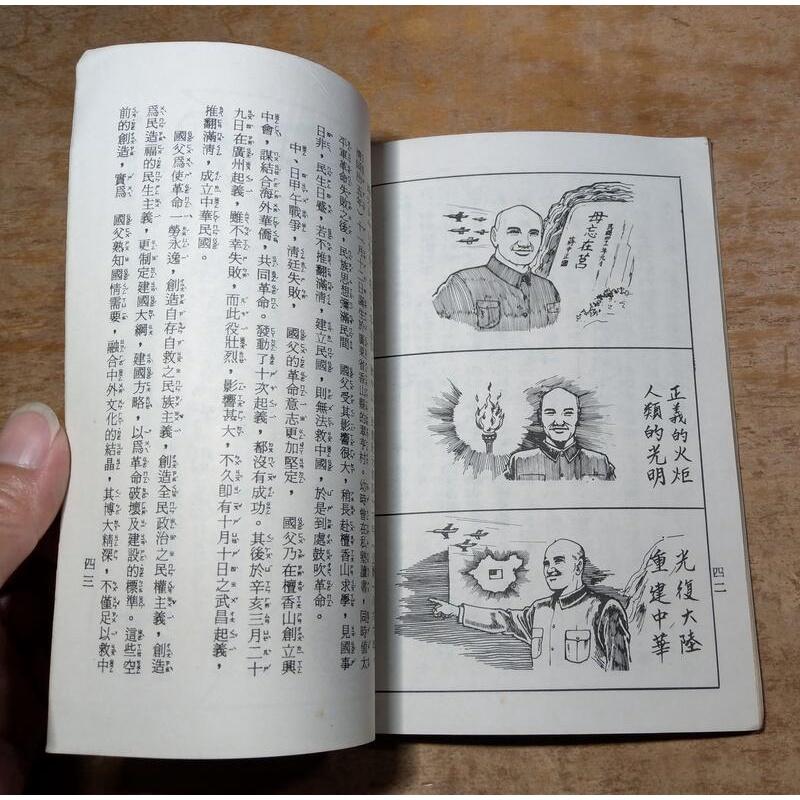 毋忘在莒
正義的火炬
人類的光明
光復大陸
重建中華
四二
十一月十二日誕生於廣東省香山縣的翠亨村。幼時曾在私塾讀書，同時值太
平軍革命失敗之後，民族思想瀰滿民間 國父受其影響很大，稍長赴檀香山求學，見國事
日非，民生日蹙，若不推翻滿清，建立民國，則無法救中國，於是到處鼓吹革命。
中、日甲午戰爭，清廷失敗， 國父的革命意志更加堅定， 國父乃在檀香山創立興
中會，謀結合海外華僑，共同革命。發動了十次起義，都沒有成功。其後於辛亥三月二十
九日在廣州起義，雖不幸失敗，而此役壯烈，影響甚大，不久即有十月十日之武昌起義，
推翻滿清，成立中華民國。
國父爲使革命一勞永逸，創造自存自救之民族主義，創造全民政治之民權主義，創造
爲民造福的民生主義，更制定建國大綱，建國方略，以爲革命破壞及建設的標準。這些空
前的創造，實爲 國父熟知國情需要，融合中外文化的結晶，其博大精深，不僅足以救中
四三